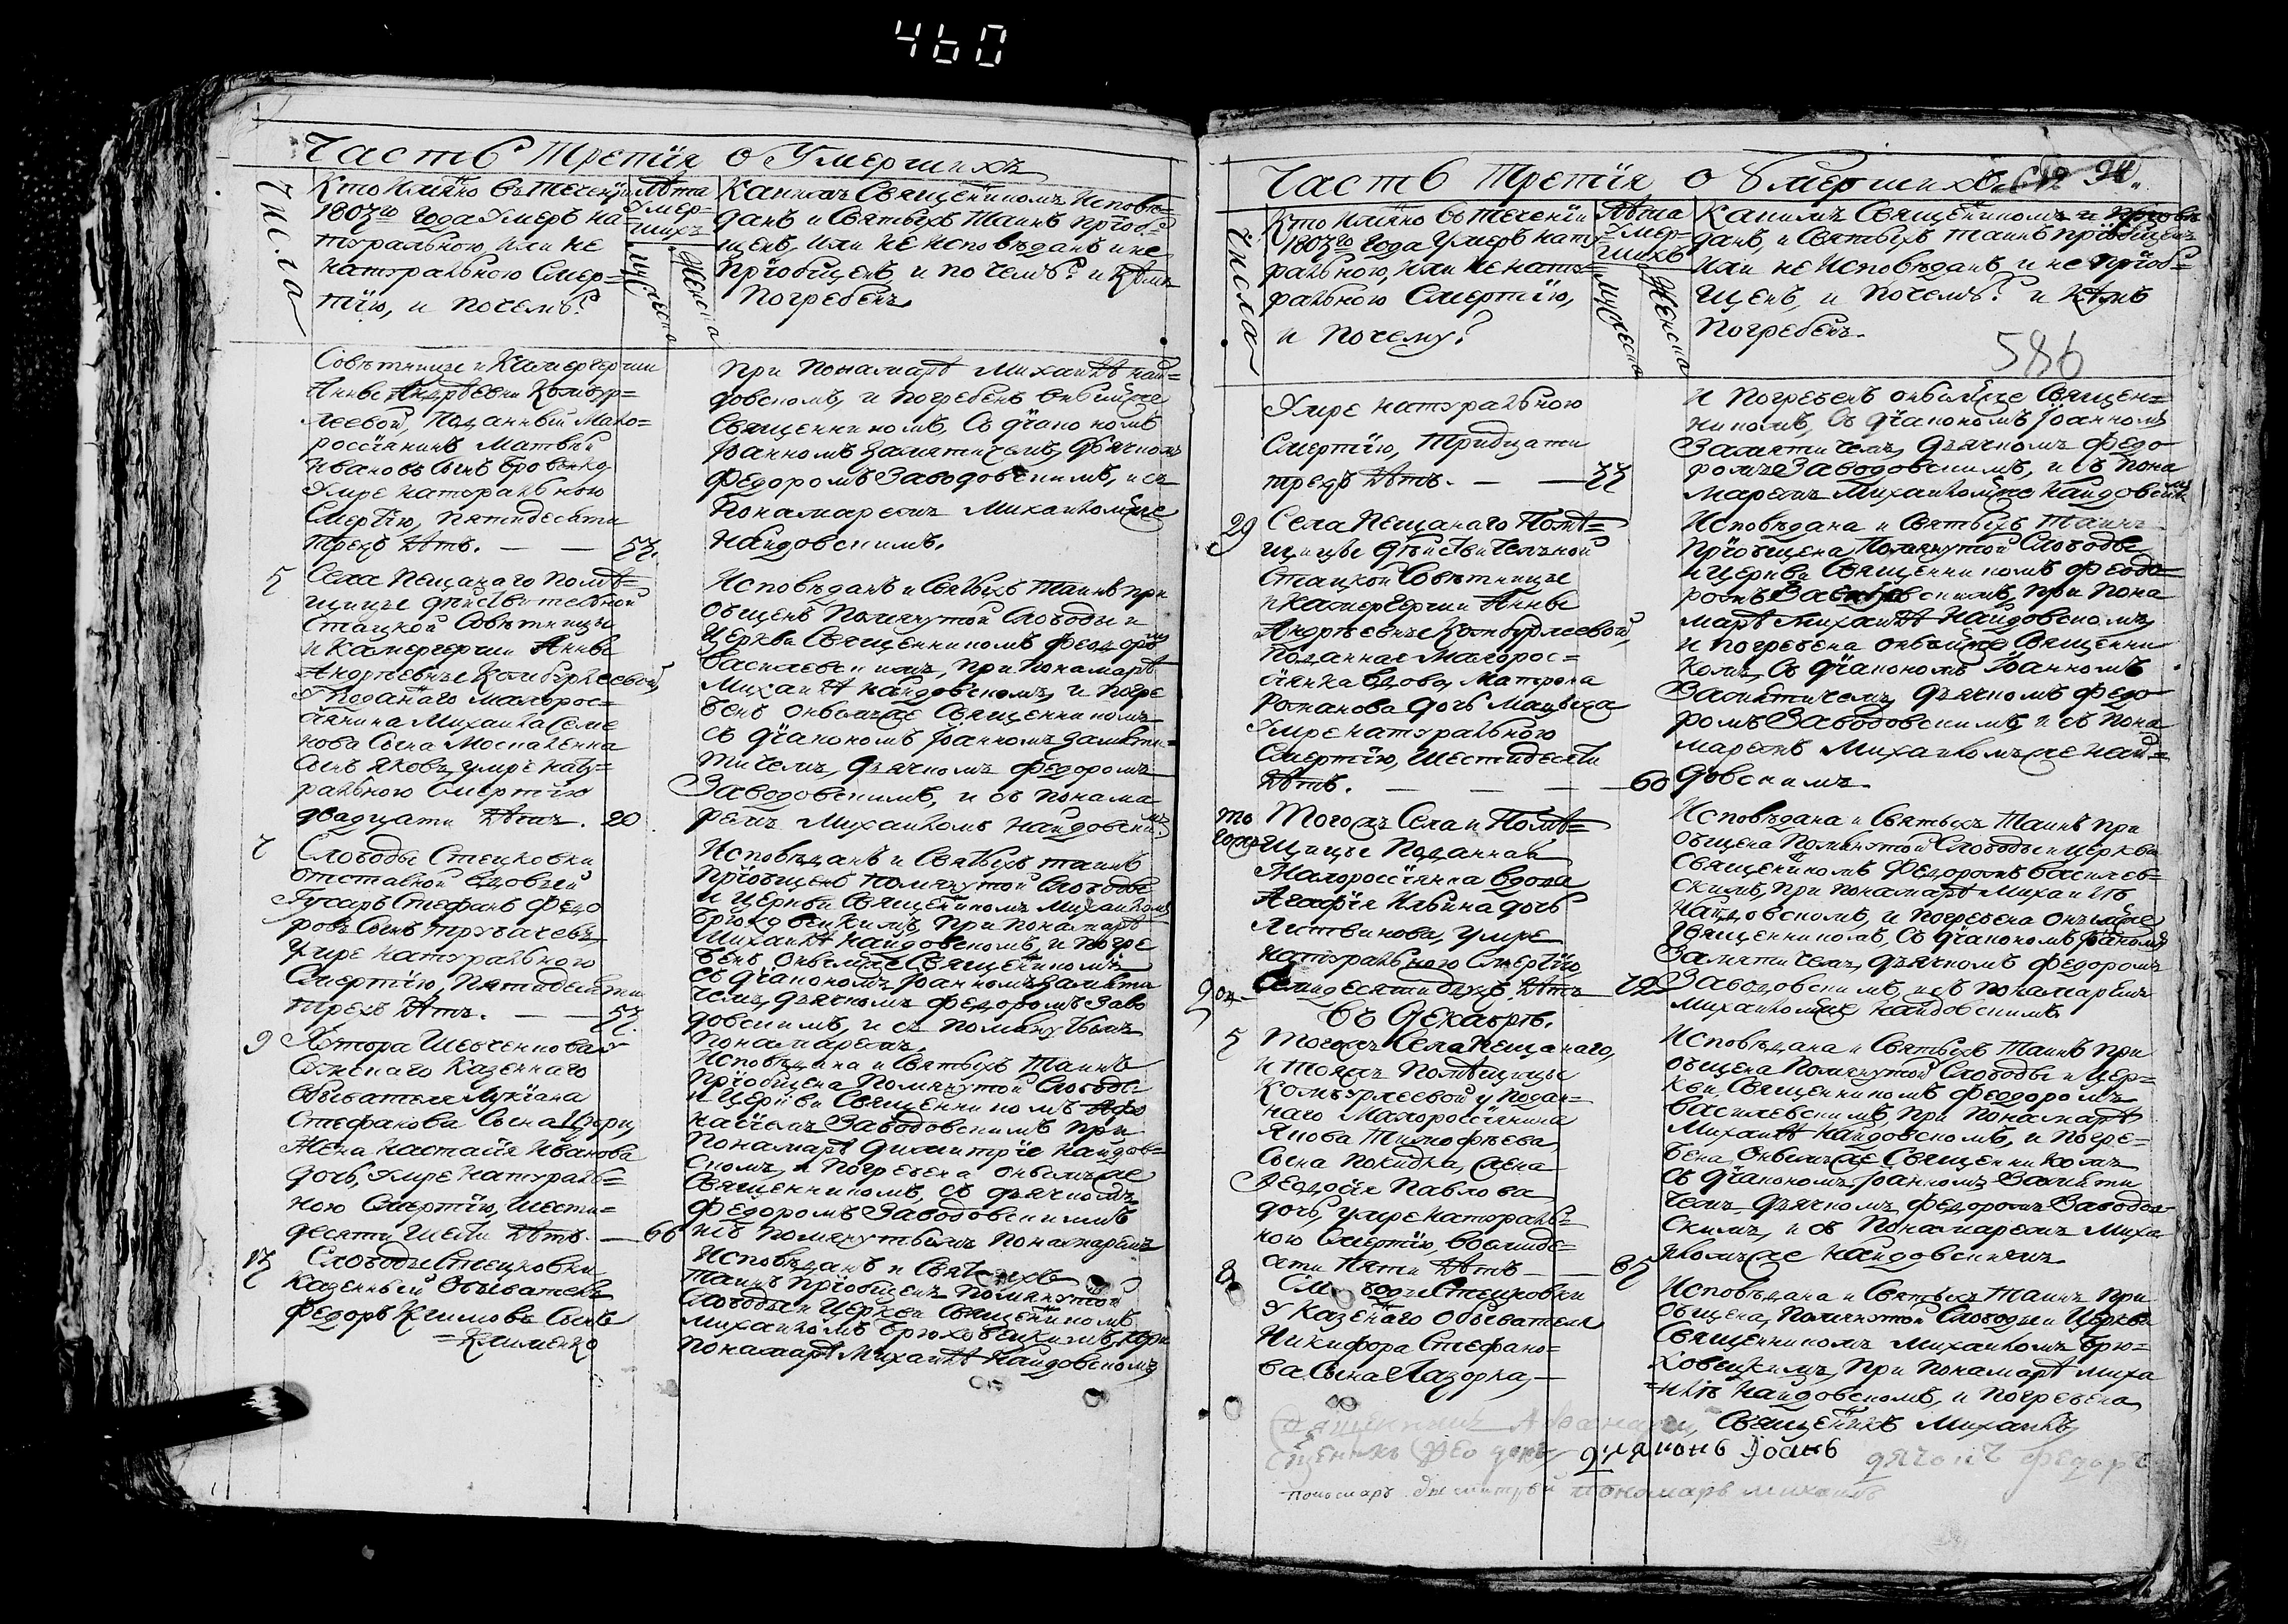 460
Часть Третїя о Умершихъ
Числа
Кто имянно въ теченїи
1803го года умеръ на=
туральною, или не
натуральною смер=
тїю, и почемъ?
Лѣта
умер=
шихъ
мужеска
женска
Какимъ Священникомъ исповѣ=
данъ и Святыхъ Таинъ прїоб=
щенъ, или не исповѣданъ и не
прїобщенъ и почемъ? и кѣмъ
Погребенъ
Совѣтнице и Камергерши
Анны Андрѣевни Комбур=
леевой, Поданный Мало=
россїянинъ Матвѣй
Ивановъ Сынъ Бровенко
Умре натуральною
Смертїю, пятидесяти
трехъ Лѣтъ. — — 53.
при понамарѣ Михаилѣ Най=
довскомъ, и погребенъ онымъже
Священникомъ, Съ дїакономъ
Іоанномъ Замятичемъ, дьячкомъ
Федоромъ Заводовскимъ, и съ
Понамаремъ Михаиломъже
Найдовскимъ.
5
Села Пещанаго помѣ=
щицы дѣйствителной
Стацкой Совѣтницы
и Камергерши Анны
Андрѣевны Комбурлеевой
у Поданаго Малорос=
сїянина Михаила Семе
нова Сына Москаленка
сынъ Яковъ, умре нату=
ральною Смертїю
двадцати Лѣтъ. 20
Исповѣданъ и Святыхъ Таинъ при
общенъ Помянутой Слободы и
Церкви Священникомъ Феодоромъ
Василевскимъ, при понамарѣ
Михаилѣ Найдовскомъ, и погре
бенъ онымъже Священникомъ
съ дїакономъ Іоанномъ Замя=
тичемъ, дьячкомъ Федоромъ
Заводовскимъ, и съ понама
ремъ Михаиломъ Найдовскимъ
7
Слободы Стецковки
отставной
Гусаръ Стефанъ Федо
ровъ Сынъ Трубачевъ
умре натуральною
Смертїю, Пятидесяти
трехъ Лѣтъ. — — 53.
Исповѣданъ и Святыхъ таинъ
прїобщенъ помянутой Слободы
и Церкви Священникомъ Михаиломъ
Брюховецкимъ, при понамарѣ
Михаилѣ Найдовскомъ, и погре
бенъ онымъже Священникомъ
съ дїакономъ Іоанномъ Замяти
чемъ, дьячкомъ Федоромъ Заво
довскимъ, и съ помянутымъ
понамаремъ.
9
Хутора Шевченкова
Казеннаго
обывателя Лукїана
Стефанова Сына
Жена Настасїя Иванова
дочь, умре натураль=
ною Смертїю, шести=
десяти шести Лѣтъ. — 66
Исповѣдана и Святыхъ Таинъ
прїобщена Помянутой Слободы
и Церкви Священникомъ Афо
насїемъ Заводовскимъ при
понамарѣ Димитрїе Найдов=
скомъ, и погребена онымъже
Священникомъ, съ дьячкомъ
Федоромъ Заводовскимъ
исъ помянутымъ понамаремъ
13
Слободы Стецковки
казенный Обыватель
Федоръ Климовъ Сынъ
=Клименко
Исповѣданъ и Святыхъ
Таинъ прїобщенъ помянутой
Слободы и Церкви Священникомъ
Михаиломъ Брюховецкимъ, при
понамарѣ Михаилѣ Найдовскомъ
Часть Третїя о Умершихъ
Числа
Кто имянно въ теченїи
1803го года умеръ нату=
ральною, или не нату=
ральною Смертїю,
и почему?
Лѣта
умер=
шихъ
мужеска
женска
Какимъ Священникомъ исповѣ
данъ, и Святыхъ таинъ прїобщенъ
или не исповѣданъ, и не прїоб=
щенъ, и почемъ? и кѣмъ
погребенъ.
586
Умре натуральною
Смертїю, тридцати
трехъ Лѣтъ. — — 33
и погребенъ онымъже Священ=
никомъ, съ дїакономъ Іоанномъ
Замятичемъ, дьячкомъ Федо
ромъ Заводовскимъ, и съ пона
маремъ Михаиломъже Найдовскимъ
29
Села Пещанаго Помѣ=
щицы дѣйствителной
Стацкой Совѣтницы
и Камергерши Анны
Андрѣевны Комбурлеевой,
Поданная Малорос=
сїянка вдова, Матрона
Романова дочь
Умре натуральною
Смертїю, шестидесяти
Лѣтъ. — — — 60
Исповѣдана и Святыхъ Таинъ
прїобщена Помянутой Слободы
и Церкви Священникомъ Феодо=
ромъ при пона
марѣ Михаилѣ Найдовскомъ,
и погребена онымъже Священни
комъ, съ дїакономъ Іоанномъ
Замятичемъ, дьячкомъ Федо
ромъ Заводовскимъ, и съ пона
маремъ Михаиломъже Най=
довскимъ.
то
гожъ
Тогожъ Села и Помѣ=
щицы Поданная
Малороссїянка вдова
Агафїя Ильина дочь
Литвинова, умре
натуральною Смертїю,
Семидесяти двухъ Лѣтъ 72
Исповѣдана и Святыхъ Таинъ при
общена Помянутой Слободы и Церкви
Священникомъ Федоромъ Василев=
скимъ, при понамарѣ Михаилѣ
Найдовскомъ, и погребена онымъже
Священникомъ, съ дїакономъ Іоаномъ
Замятичемъ, дьячкомъ Федоромъ
Заводовскимъ, исъ понамаремъ
Михаиломъже Найдовскимъ
въ Декабрѣ.
5
Тогожъ Села Пещанаго,
и тояжъ Помѣщицы
Комбурлеевой у Подан=
наго Малороссїянина
Якова Тимофѣева
Сына Покидка, жена
Феодосїя Павлова
дочь, умре натураль=
ною Смертїю, восмиде=
сяти пяти Лѣтъ — 85
Исповѣдана и Святыхъ Таинъ при
общена Помянутой Слободы и Цер=
кви, Священникомъ Феодоромъ
Василевскимъ, при понамарѣ
Михаилѣ Найдовскомъ, и погре=
бена онымъже Священникомъ
съ дїакономъ Іоанномъ Замяти
чемъ, дьячкомъ Федоромъ Заводов
скимъ, и съ понамаремъ Миха
иломъже Найдовскимъ
8
Слободы Стецковки
у Казеннаго обывателя
Никифора Стефано=
ва Сына Лазорка, —
Исповѣдана и Святыхъ Таинъ при
общена, Помянутой Слободы и Церкви
Священникомъ Михаиломъ Брю=
ховецкимъ, при понамарѣ Миха
илѣ Найдовскомъ, и погребена
Священникъ Михаилъ
дїяконъ Іоанъ
дячокъ Федоръ
пономаръ Димитрїй пономаръ Михаилъ